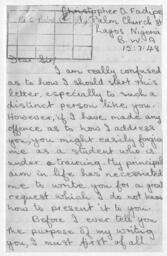 Christopher O. Fadipe
Palm Church St
Lagos Nigeria
B. W. A
15:7:48
Dear Sir,
I am really confused
as to how I should start this
letter, especially to such a
distinct person like you.
However, if I have made any
offence as to how I address
you, you might easily forgive
me as a student who is
under a training. My principal
aim in life has necessitated
me to write you for a good
request which I do not know
how to present it to you.
Before I ever tell you
the purpose of my writing
you, I must first of all